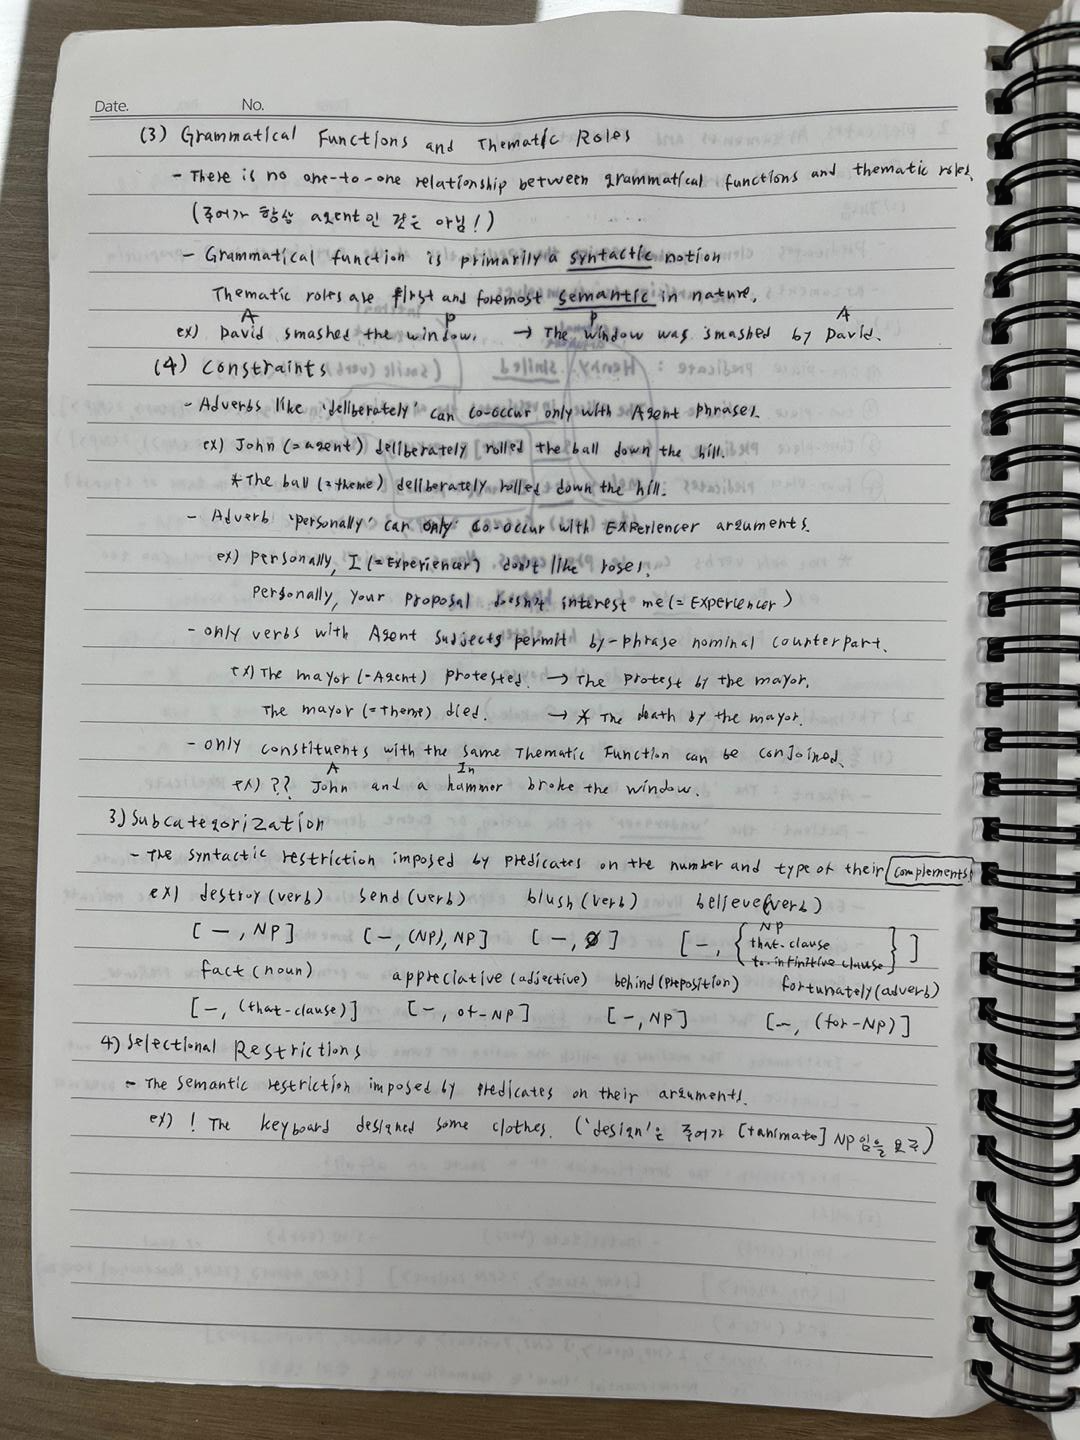 Date. No.
(3) Grammatical Functions and Thematic Roles
- There is no one-to-one relationship between grammatical functions and thematic roles.
(주어가 항상 agent인 것은 아님!)
- Grammatical function is primarily a syntactic notion
Thematic roles are first and foremost semantic in nature.
A P P A
ex) David smashed the window. → The window was smashed by David.
(4) Constraints
- Adverbs like 'deliberately' can co-occur only with Agent phrases.
ex) John (=agent) deliberately rolled the ball down the hill.
* The ball (=theme) deliberately rolled down the hill.
- Adverb 'personally' can only co-occur with Experiencer arguments.
ex) Personally, I (=Experiencer) don't like roses.
Personally, your proposal doesn't interest me (=Experiencer)
- only verbs with Agent subjects permit by-phrase nominal counterpart.
ex) The mayor (=Agent) protested. → The protest by the mayor.
The mayor (=Theme) died. → * The death by the mayor.
- only constituents with the same Thematic Function can be conjoined.
A In
ex) ?? John and a hammer broke the window.
3) Subcategorization
- The syntactic restriction imposed by predicates on the number and type of their complements
ex) destroy (verb) send (verb) blush (verb) believe (verb)
[ —, NP ] [ —, (NP), NP ] [ —, Ø ] [ —, { NP that-clause to-infinitive clause } ]
fact (noun) appreciative (adjective) behind (preposition) fortunately (adverb)
[ —, (that-clause) ] [ —, of-NP ] [ —, NP ] [ —, (for-NP) ]
4) Selectional Restrictions
- The semantic restriction imposed by predicates on their arguments.
ex) ! The keyboard designed some clothes. ('design'은 주어가 [+animate] NP임을 요구)